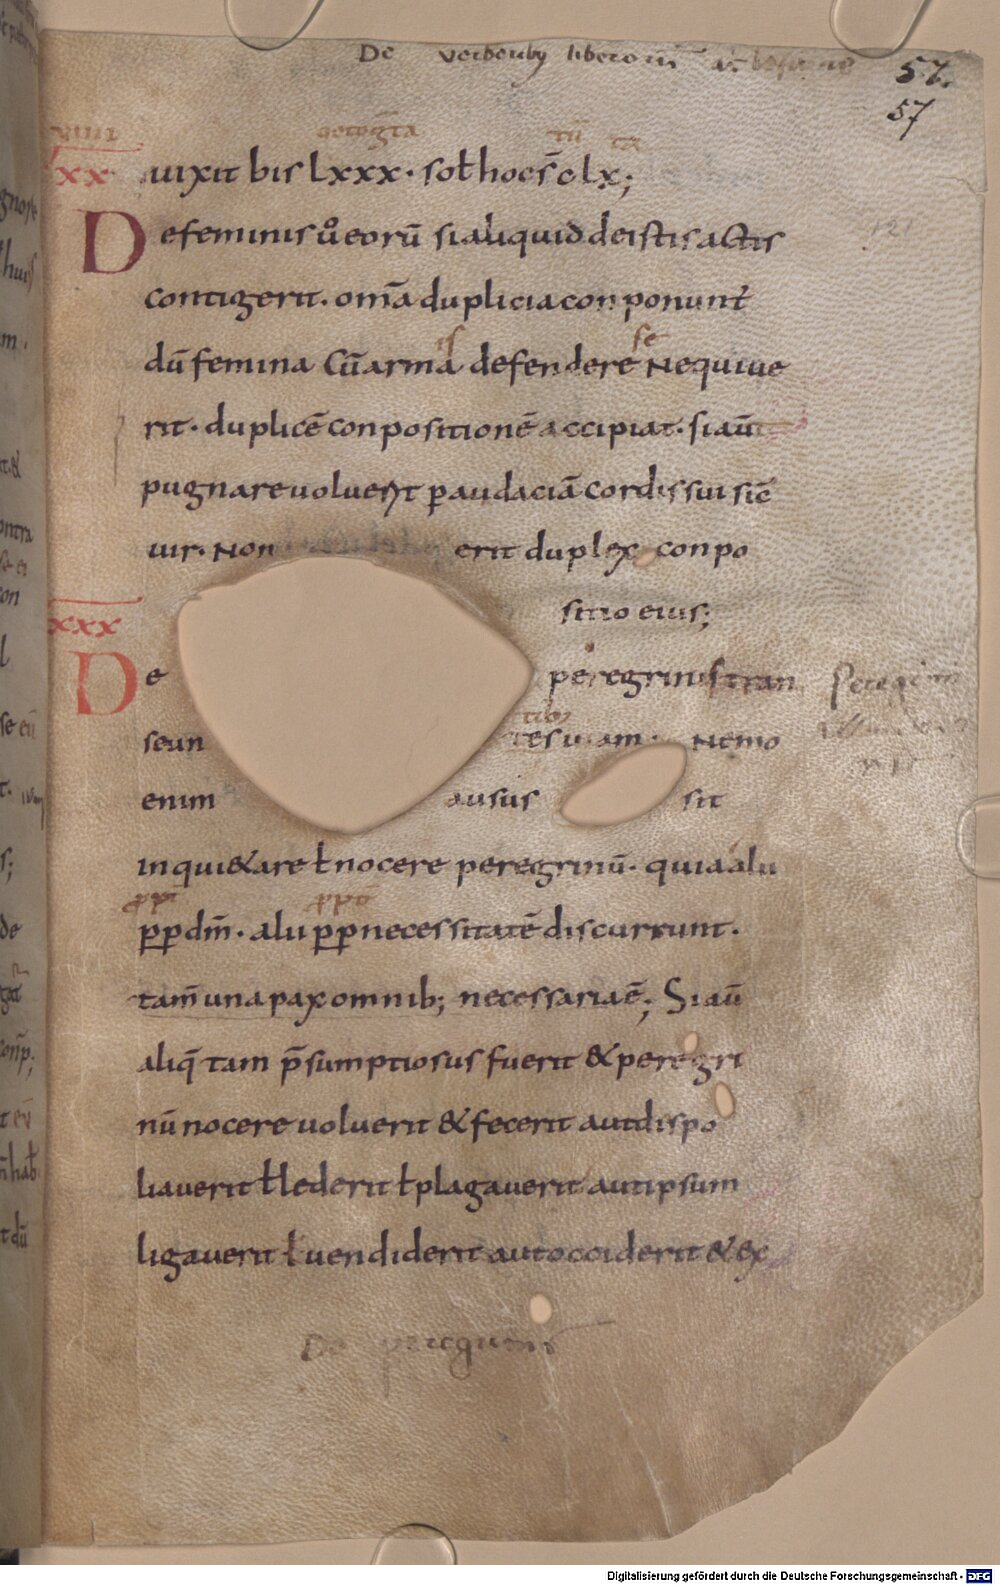 De verberibus liberorum
57.
57
VIIII
XX
octogita
tii
ta
uixit bis lxxx· soł hoc e̅ clx;
De feminis ů eorū si aliquid de istis actis
contigerit· om̅a duplicia conponunt̄
is
se
dū femina cū arma defendere nequiue
rit· duplicē conpositionē accipiat· si aut̄
pugnare uoluerit p audaciā cordis sui sic̄
uir· non erit duplex conpo
sitio eius;
XXX
De peregrinis tran
Peregrini
tib;
seuntes uiam· Nemo
enim ausus sit
inqui&are ł nocere peregrinū· quia alii
ꝓpt̄
ꝓpt̄
pp dm̄· alii pp necessitatē discurrunt·
tam̄ una pax omnib; necessaria ē; Si aū
aliq̄ tam p̄sumptiosus fuerit & peregri
nū nocere uoluerit & fecerit aut dispo
liauerit ł lederit ł plagauerit aut ipsum
ligauerit ł uendiderit aut occiderit & ex
De peregrinis
Digitalisierung gefördert durch die Deutsche Forschungsgemeinschaft - DFG